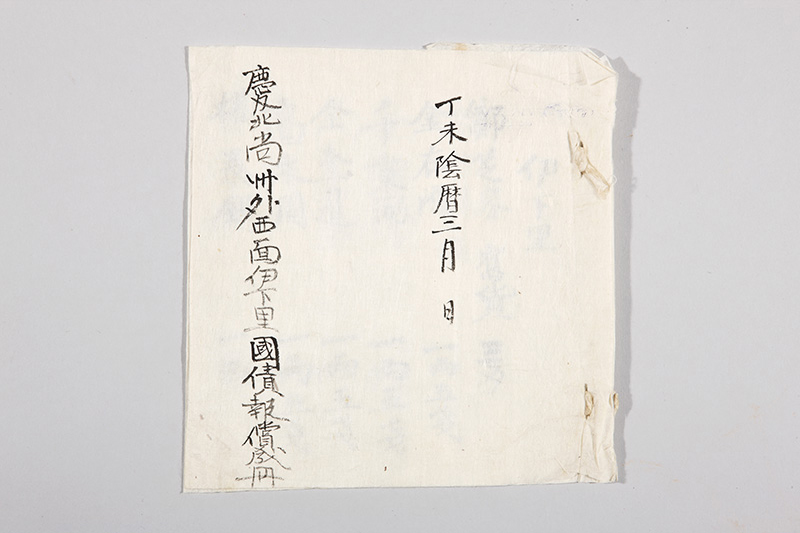 丁未陰曆三月 日
慶北尙州外西面伊下里國債報償成冊